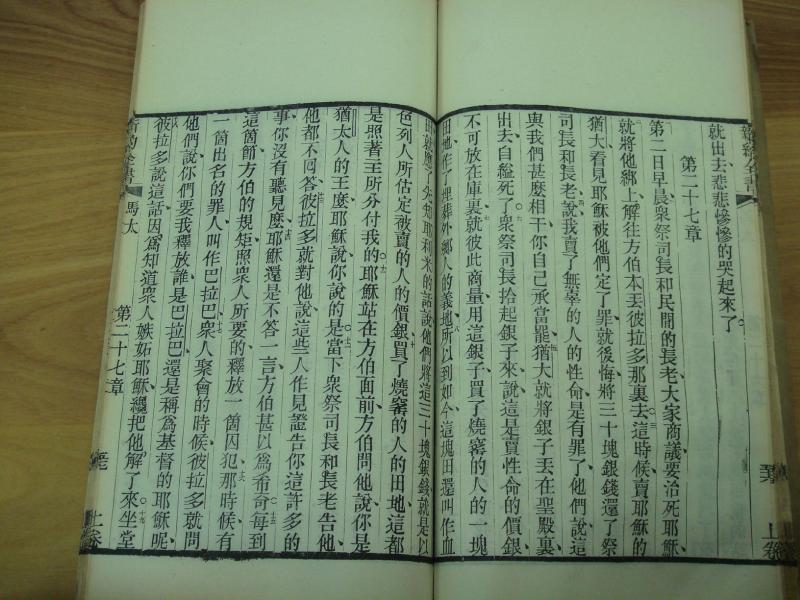 就出去悲悲慘慘的哭起來了
第二十七章
第二日早晨衆祭司長和民間的長老大家商議要治死耶穌
就將他綁上解往方伯本丟彼拉多那裏去這時候賣耶穌的
猶大看見耶穌被他們定了罪就後悔將三十塊銀錢還了祭
司長和長老說我賣了無辜的人的性命是有罪了他們說這
與我們甚麼相干你自己承當罷猶大就將銀子丟在聖殿裏
出去自縊死了衆祭司長拾起銀子來說這是賣性命的價銀
不可放在庫裏就彼此商量用這銀子買了燒窰的人的一塊
田地作了埋葬外鄉人的義地所以到如今這塊田還叫作血
田就應了先知耶利米的話說他們將這三十塊銀錢就是以
色列人所估定被賣的人的價銀買了燒窰的人的田地這都
是照著主所分付我的耶穌站在方伯面前方伯問他說你是
猶太人的王麼耶穌說你說的是當下衆祭司長和長老告他
他都不回答彼拉多就對他說這些人作見證告你這許多的
事你沒有聽見麼耶穌還是不答一言方伯甚以爲希奇每到
這箇節方伯的規矩照衆人所要的釋放一箇囚犯那時候有
一箇出名的罪人叫作巴拉巴衆人聚會的時候彼拉多就問
他們說你們要我釋放誰是巴拉巴還是稱爲基督的耶穌呢
彼拉多說這話因爲知道衆人嫉妬耶穌纔把他解了來坐堂
新約全書
馬太
第二十七章
上卷